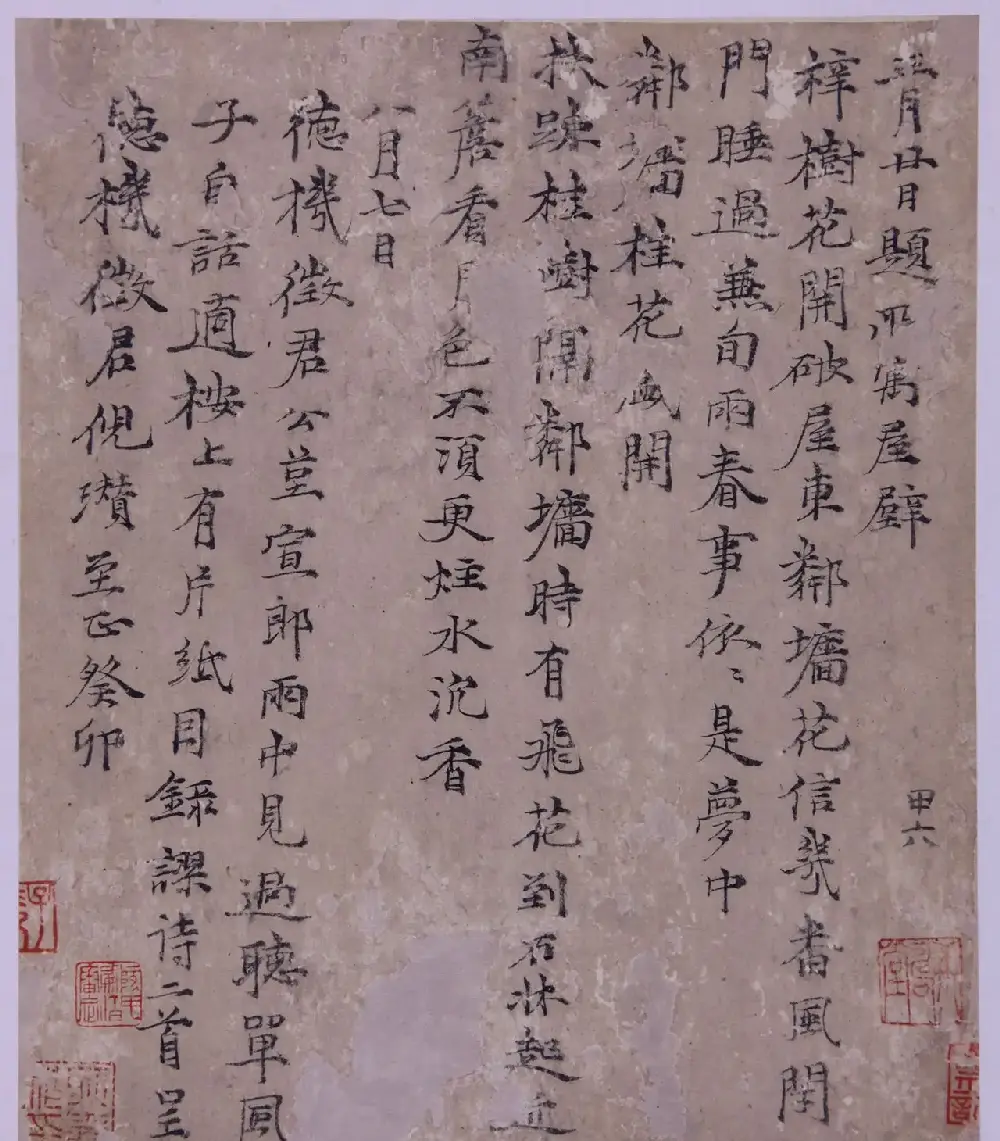 三月廿日題所寓屋壁
梓樹花開破屋東鄰墻花信幾番風閉
門睡過兼旬雨春事依〻是夢中
鄰墻桂花盛開
扶疎桂樹隔鄰墻時有飛花到石牀起近
南簷看月色不須更炷水沉香
八月七日
德機徵君公莖宣郎雨中見過聽單同
子白話適桉上有片紙因錄謬詩二首呈
德機徵君倪瓚至正癸卯
甲六